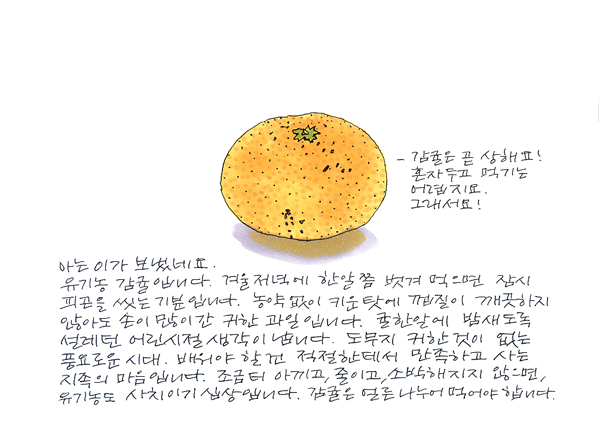 - 감귤은 곧 상해요!
혼자두고 먹기는
어렵지요.
그래서요!
아는 이가 보냈네요.
유기농 감귤입니다. 겨울저녁에 한알쯤 벗겨 먹으면 잠시
피곤을 씻는 기분입니다. 농약없이 키운탓에 껍질이 깨끗하지
않아도 손이 많이간 귀한 과일입니다. 귤한알에 밤새도록
설레던 어린시절 생각이 납니다. 도무지 귀한것이 없는
풍요로운 시대. 배워야 할 건 적절한데서 만족하고 사는
지족의 마음입니다. 조금 더 아끼고, 줄이고, 소박해지지 않으면,
유기농도 사치이기 십상입니다. 감귤은 얼른 나누어 먹어야 합니다.